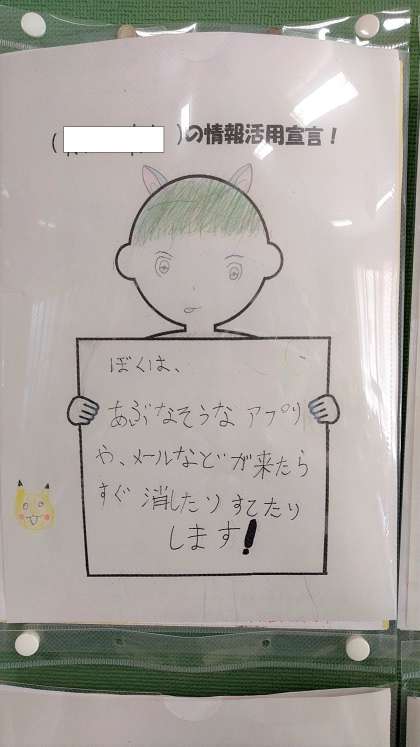 ( )の情報活用宣言！
ぼくは、
あぶなそうなアプリ
や、メールなどが来たら
すぐ消したりすてたり
します！